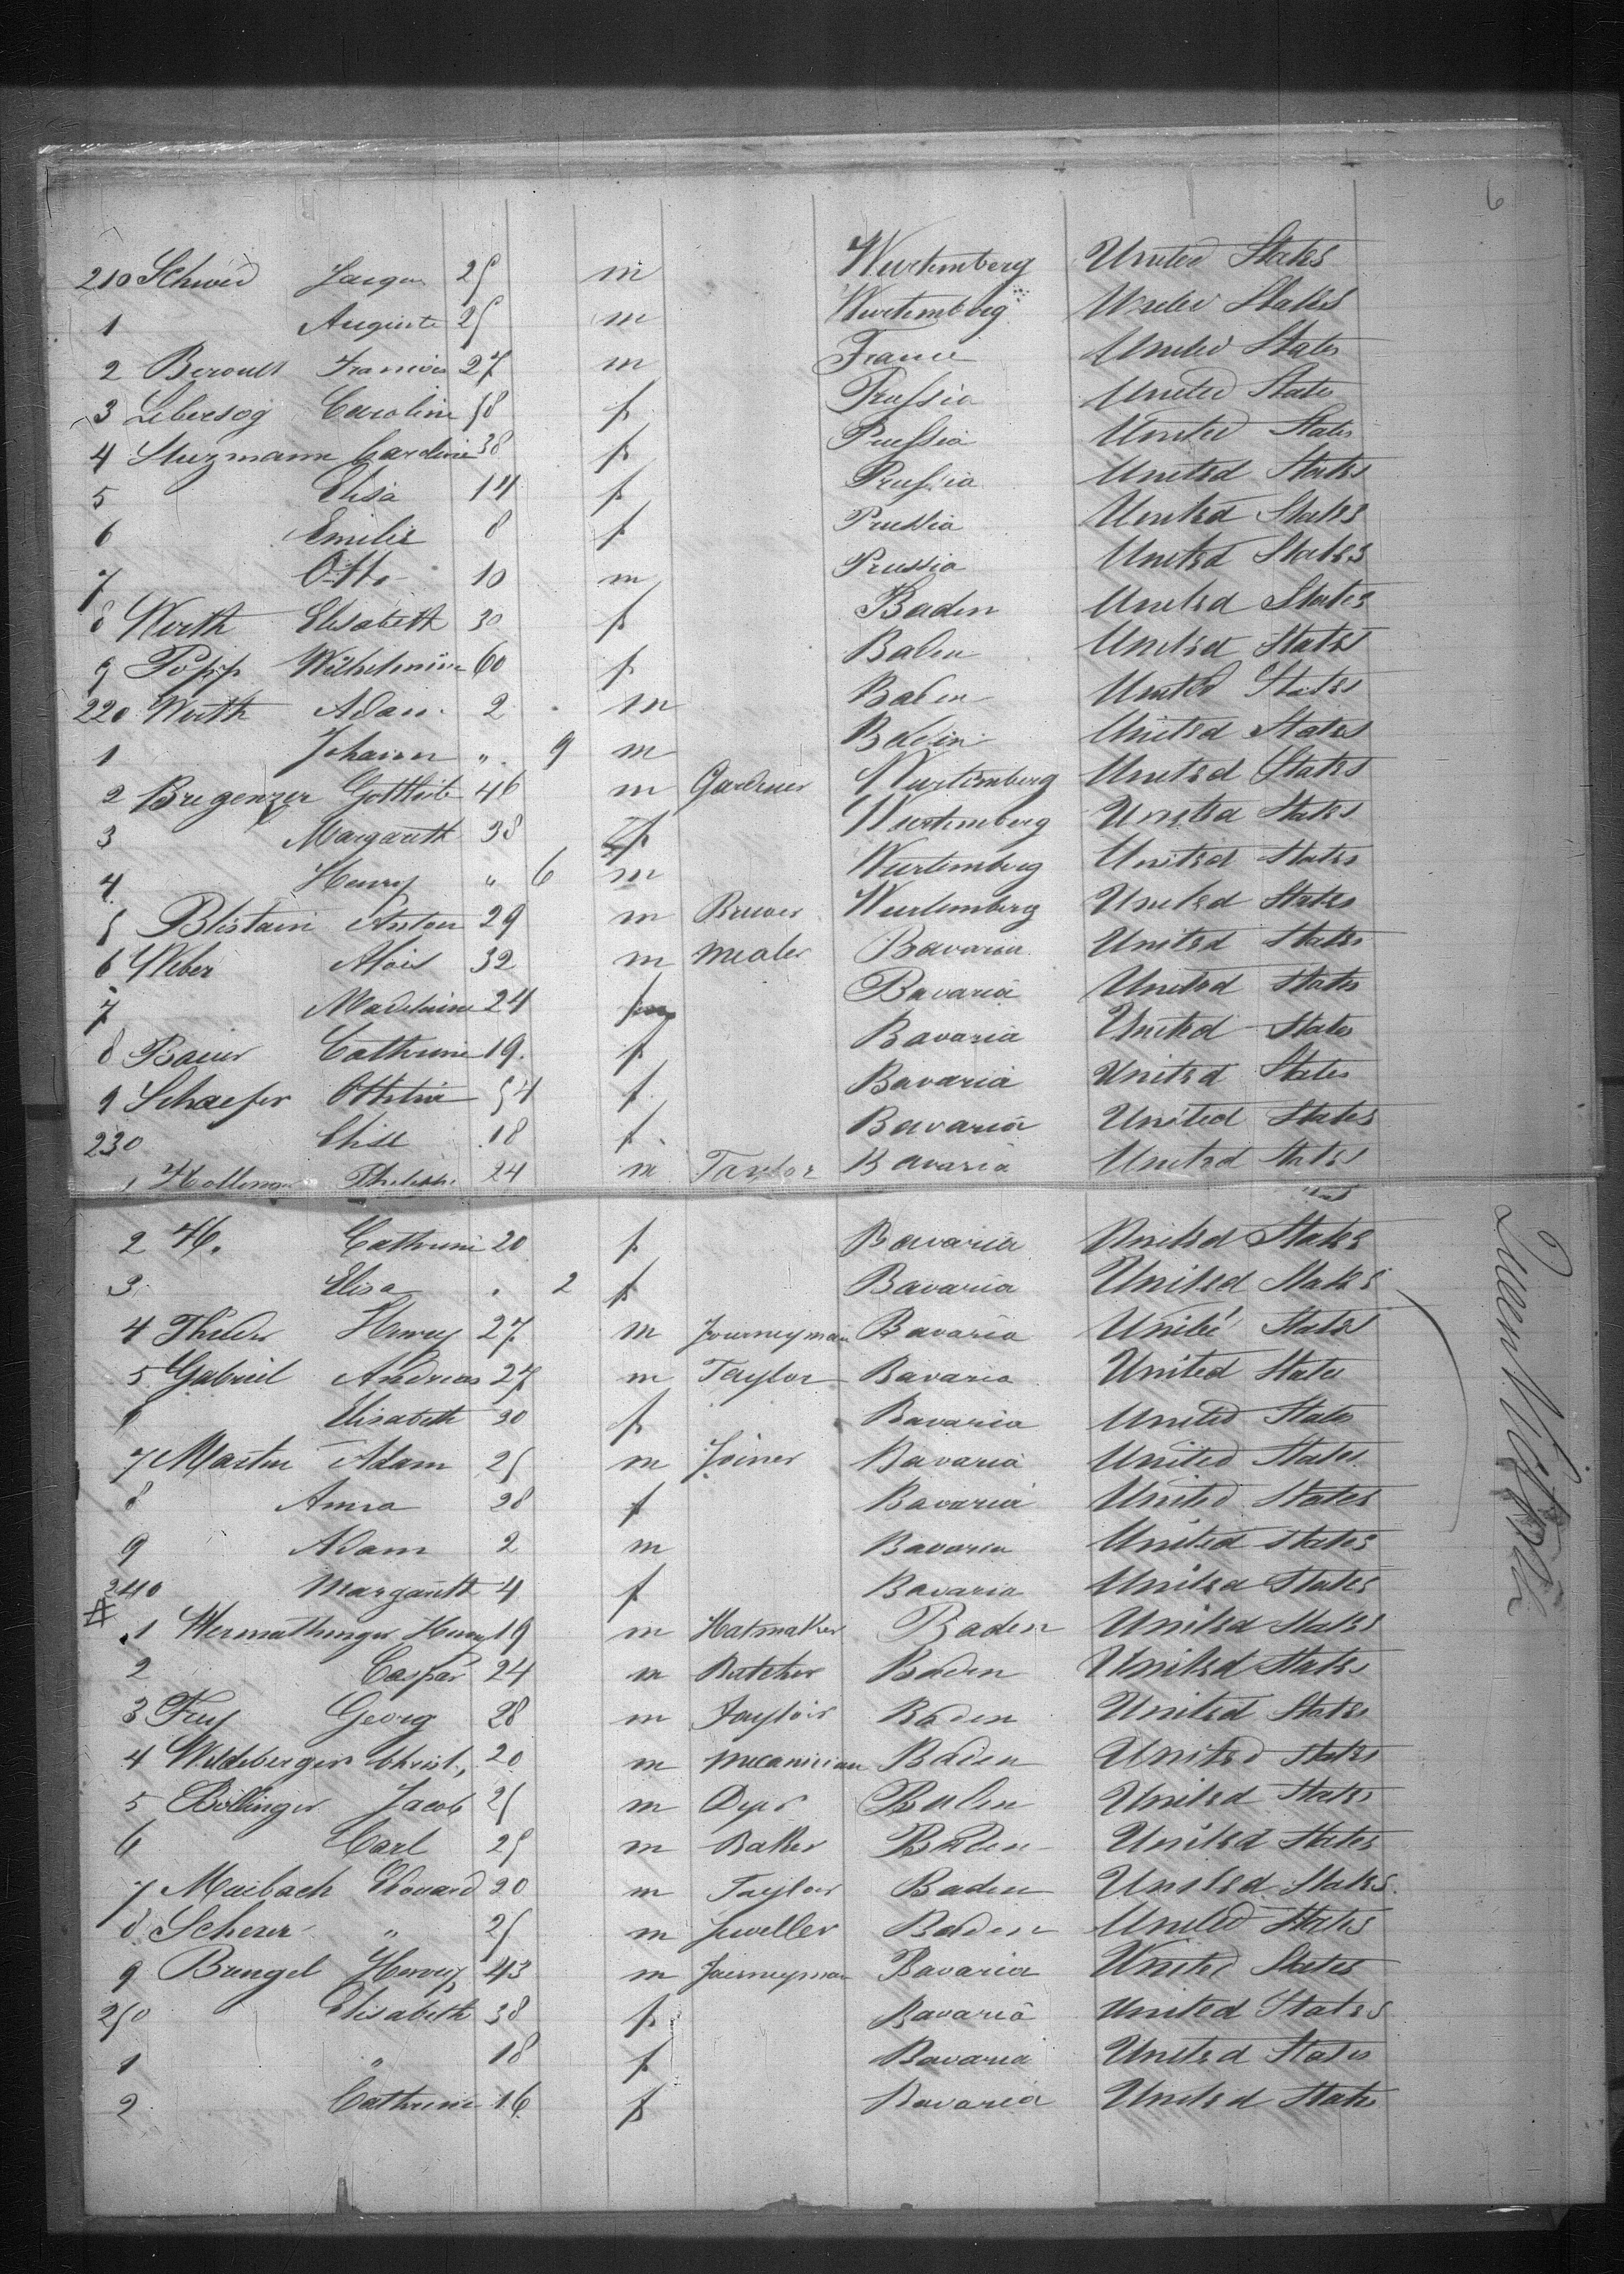 6
210 Schwed Jacques 25 m Wurtemberg United States
1 Auguste 25 m Wurtemberg United States
2 Francois 27 m France United States
3 Lebersog Caroline 58 f Prussia United States
4 Sturzmann Caroline 38 f Prussia United States
5 Elisa 14 f Prussia United States
6 Emilie 8 f Prussia United States
7 Otto 10 m Prussia United States
8 Werth Elisabeth 30 f Baden United States
9 Popp Wilhelmine 60 f Baden United States
220 Werth Adam 2 m Baden United States
1 Johann " 9 m Baden United States
2 Bregenzer Gottlieb 46 m Gardner Wurtemberg United States
3 Margareth 38 f Wurtemberg United States
4 Henry " 6 m Wurtemberg United States
5 Blistain Anton 29 m Brewer Wurtemberg United States
6 Weber Alois 32 m Bavaria United States
7 Madelaine 24 f Bavaria United States
8 Bauer Cathrine 19 f Bavaria United States
9 Schaefer Ottilia 54 f Bavaria United States
230 18 f Bavaria United States
1 24 m Taylor Bavaria United States
2 H. Cathrine 20 f Bavaria United States
3 Elisa " 2 f Bavaria United States
4 Henry 27 m Journeyman Bavaria United States
5 Gabriel Andreas 27 m Taylor Bavaria United States
6 Elisabeth 30 f Bavaria United States
7 Martin Adam 25 m Joiner Bavaria United States
8 Anna 28 f Bavaria United States
9 Adam 2 m Bavaria United States
240 Margareth 4 f Bavaria United States
1 Wermuthinger Henry 19 m Hatmaker Baden United States
2 Caspar 24 m Butcher Baden United States
3 Frey Georg 28 m Taylor Baden United States
4 Wildeberger Christ. 20 m Mecanician Baden United States
5 Bollinger Jacob 25 m Dyer Baden United States
6 Carl 25 m Baker Baden United States
7 Maibach Edouard 20 m Taylor Baden United States
8 Scherer " 25 m Jeweller Baden United States
9 Brengel Henry 43 m Journeyman Bavaria United States
250 Elisabeth 38 f Bavaria United States
1 " 18 f Bavaria United States
2 Cathrine 16 f Bavaria United States